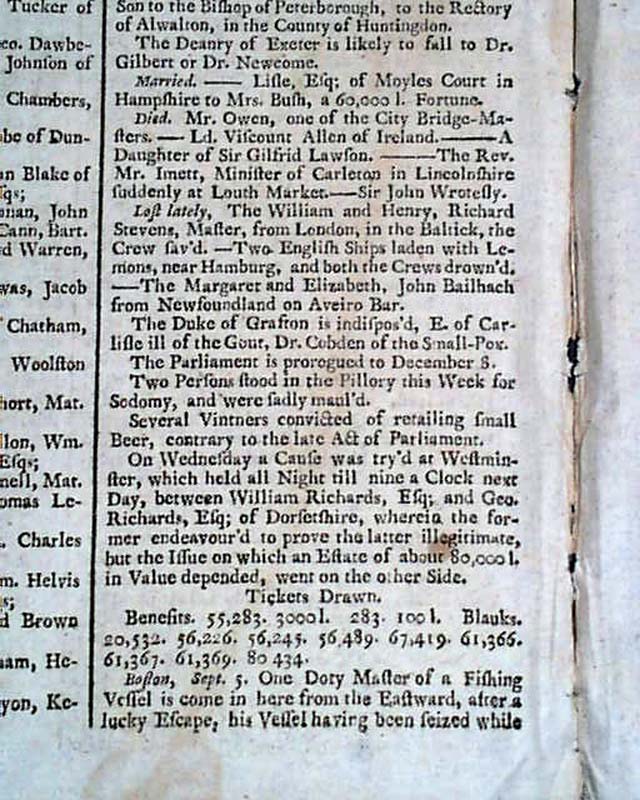 Tucker of
co. Dawbe-
Johnson of
Chambers,
be of Dun-
an Blake of
sqs;
onan, John
Cann, Bart.
d Warren,
was, Jacob
Chatham,
Woolston
hort, Mat.
llon, Wm.
Esqs;
nell, Mat.
omas Le-
. Charles
m. Helvis
s;
d Brown
am, He-
yon, Ke-
Son to the Bishop of Peterborough, to the Rectory
of Alwalton, in the County of Huntingdon.
The Deanry of Exeter is likely to fall to Dr.
Gilbert or Dr. Newcome.
Married. —— Lisle, Esq; of Moyles Court in
Hampshire to Mrs. Bush, a 60,000 l. Fortune.
Died. Mr. Owen, one of the City Bridge-Ma-
sters. — Ld. Viscount Allen of Ireland. —— A
Daughter of Sir Gilfrid Lawson. —— The Rev.
Mr. Imett, Minister of Carleton in Lincolnshire
suddenly at Louth Market. — Sir John Wrotesly.
Lost lately, The William and Henry, Richard
Stevens, Master, from London, in the Baltick, the
Crew sav'd. — Two English Ships laden with Le-
mons, near Hamburg, and both the Crews drown'd.
— The Margaret and Elizabeth, John Bailhach
from Newfoundland on Aveiro Bar.
The Duke of Grafton is indispos'd, E. of Car-
lisle ill of the Gout, Dr. Cobden of the Small-Pox.
The Parliament is prorogued to December 8.
Two Persons stood in the Pillory this Week for
Sodomy, and were sadly maul'd.
Several Vintners convicted of retailing small
Beer, contrary to the late Act of Parliament.
On Wednesday a Cause was try'd at Westmin-
ster, which held all Night till nine a Clock next
Day, between William Richards, Esq; and Geo.
Richards, Esq; of Dorsetshire, wherein the for-
mer endeavour'd to prove the latter illegitimate,
but the Issue on which an Estate of about 80,000 l.
in Value depended, went on the other Side.
Tickets Drawn.
Benefits. 55,283. 3000 l. 283. 100 l. Blauks.
20,532. 56,226. 56,245. 56,489. 67,419. 61,366.
61,367. 61,369. 80 434.
Boston, Sept. 5. One Doty Master of a Fishing
Vessel is come in here from the Eastward, after a
lucky Escape, his Vessel having been seized while